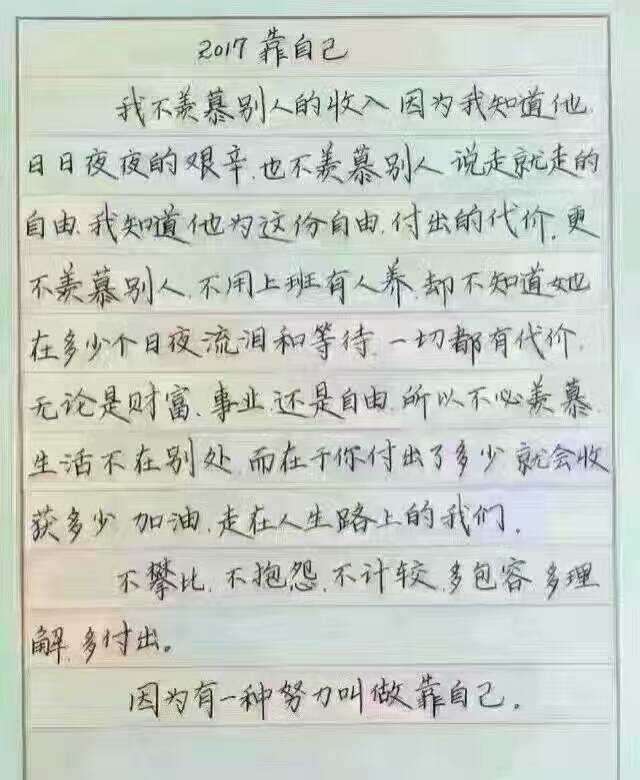 2017 靠自己
我不羡慕别人的收入 因为我知道他
日日夜夜的艰辛.也不羡慕别人 说走就走的
自由.我知道他为这份自由.付出的代价.更
不羡慕别人.不用上班有人养.却不知道她
在多少个日夜流泪和等待.一切都有代价.
无论是财富、事业.还是自由.所以不必羡慕.
生活不在别处.而在于你付出了多少 就会收
获多少 加油.走在人生路上的我们.
不攀比.不抱怨.不计较.多包容 多理
解.多付出。
因为有一种努力叫做靠自己.